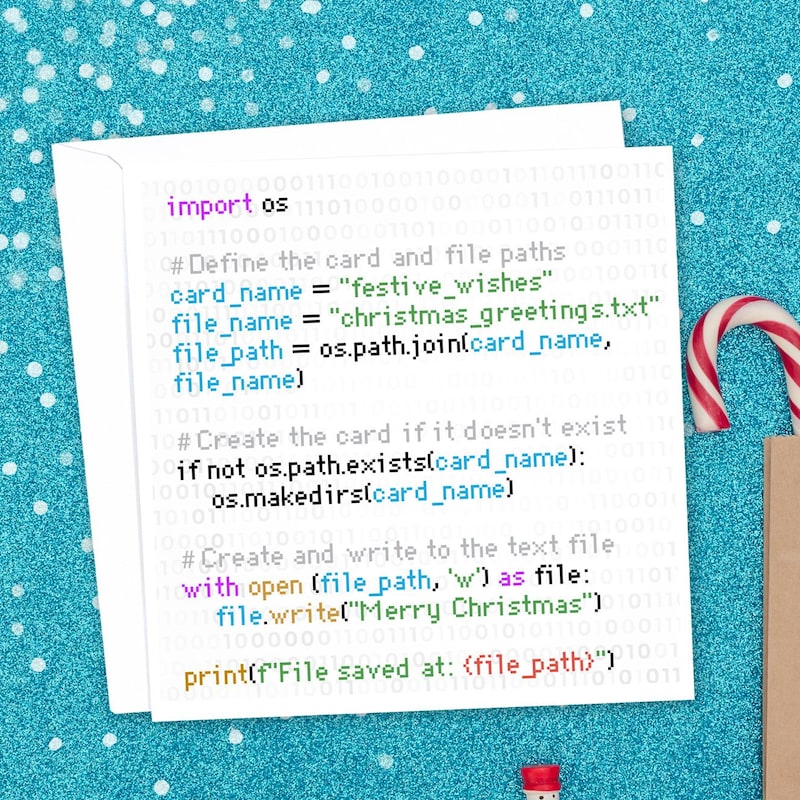 import os
# Define the card and file paths
card_name = "festive_wishes"
file_name = "christmas_greetings.txt"
file_path = os.path.join(card_name,
file_name)
# Create the card if it doesn't exist
if not os.path.exists(card_name):
    os.makedirs(card_name)
# Create and write to the text file
with open (file_path, 'w') as file:
    file.write("Merry Christmas")
print(f"File saved at: {file_path}")